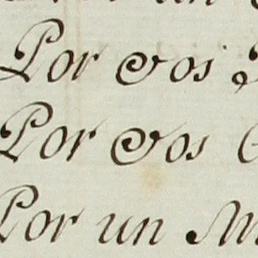 Por vos
Por vos
Por un